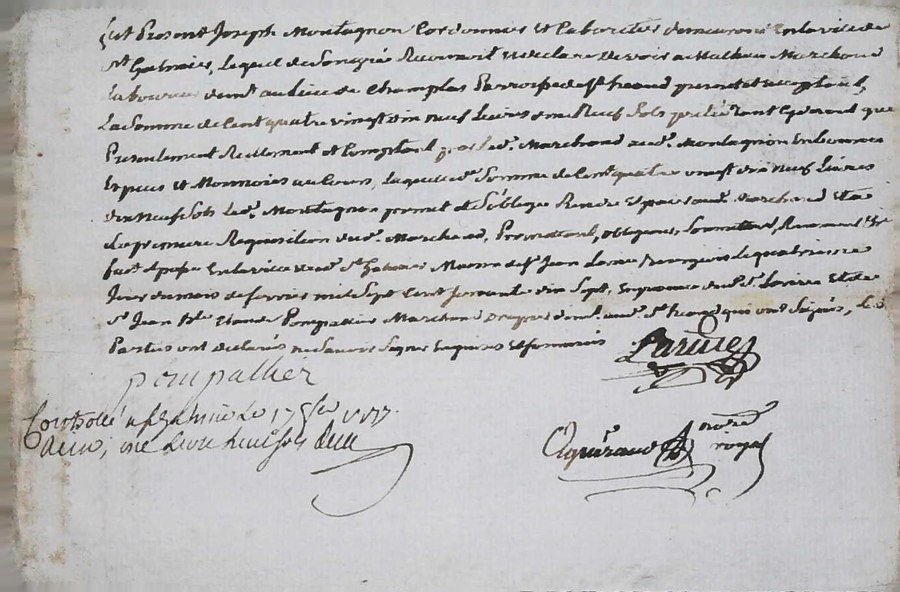 fut Present Joseph Montagnon Cordonnier et Cabaretier demeurant En la ville de
St Galmier, Lequel de Son gré Reconnait et declare Devoir a Mathieu Marchand
Laboureur demt au lieu de Champlas Parroisse de st present et acceptant,
La Somme de Cent quatre vingt dix neuf Livres dix Neuf Sols
Presentement Reellement et Comptant par led. Marchand aud. Montagnon En bonnes
Espèces et Monnoies au Cours, Laquelle de Somme de Cent quatre vingt dix neuf Livres
dix Neuf Sols Led. Montagnon promet et S'oblige Rendre et paier aud. Marchand a
La premiere Requisition dud. Marchand, Promettant, obligeant, Soumettant, Renonceant
fait et passé En la ville de St Galmier Maison de Sr Jean Bourgeois le quatrieme
Jour du mois de fevrier mil Sept Cent Soixante dix Sept, En presence dud. Sr Larive Et de
Sr Jean Bte Claude Pompallier Marchand qui ont Signés, Les
Parties ont declarés ne Savoir Signer Enquises Et Sommées
Larive
pompallier
Controllé a st galmier Le 17 1777.
Reçu, une Livre huit sols
not.re
royal